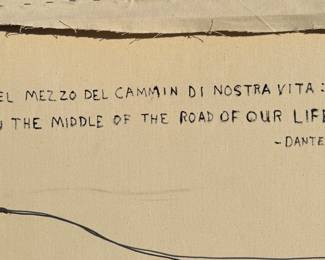 EL MEZZO DEL CAMMIN DI NOSTRA VITA:
THE MIDDLE OF THE ROAD OF OUR LIFE
-DANTE